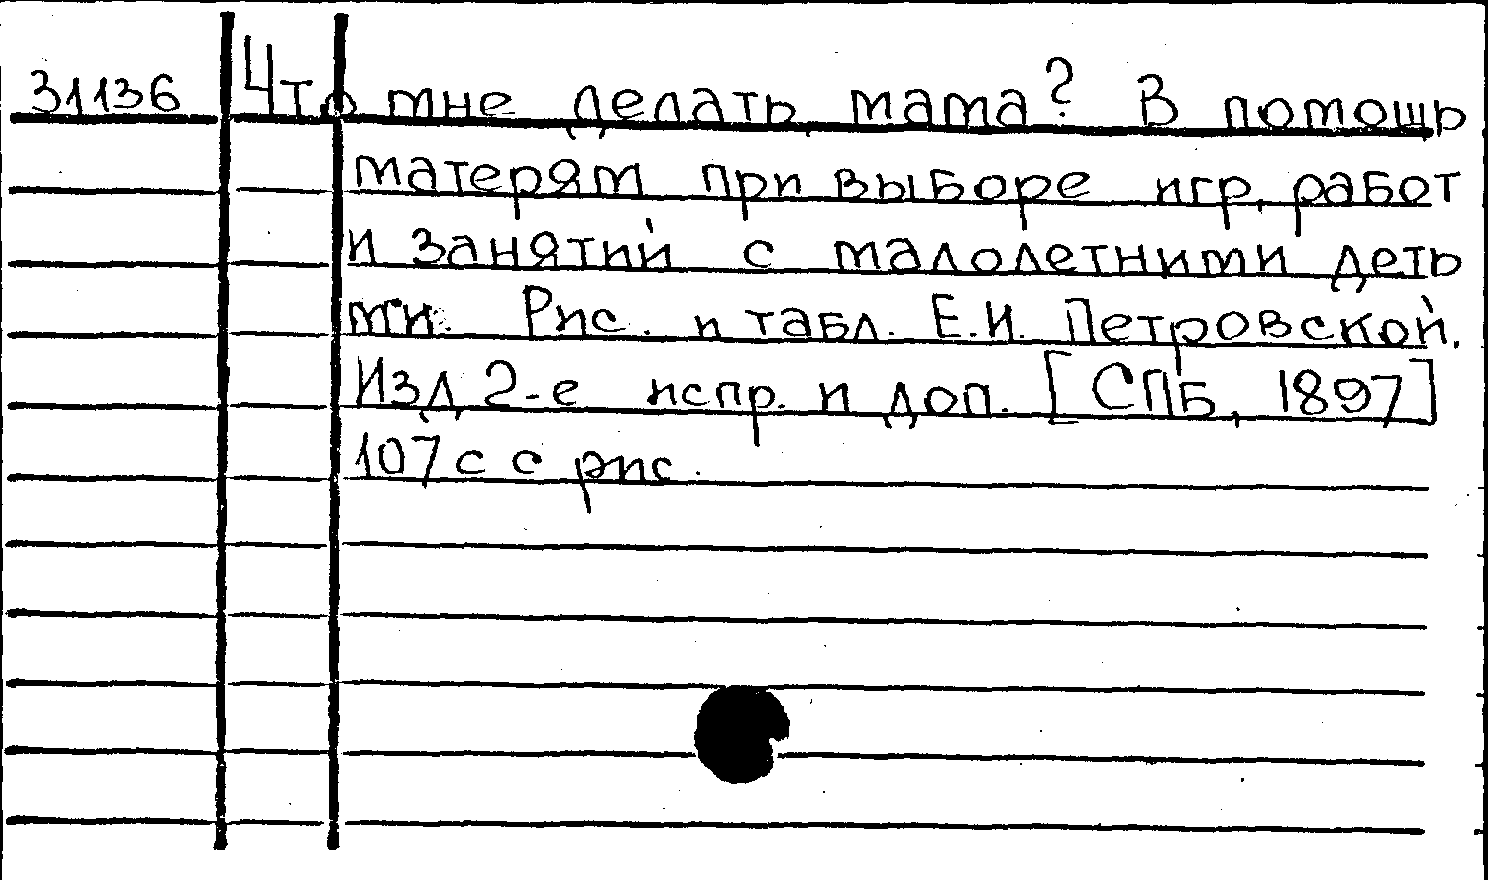 31136 Что мне делать, мама? В помощь
матерям при выборе игр, работ
и занятий с малолетними деть
ми. Рис. и табл. Е.И. Петровской.
Изд. 2-е испр. и доп. [СПБ, 1897]
107 с с рис.